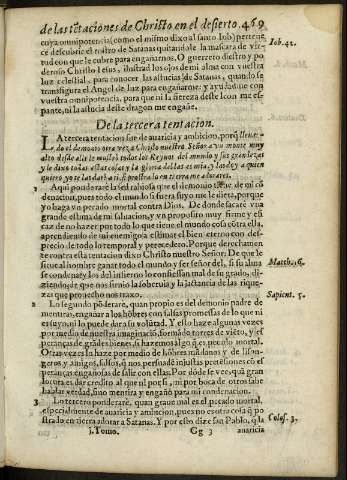 de las tētaciones de Christo en el desierto. 469
cuya omnipotencia (como el mismo dixo al santo Iob) pertene-
ce descubrir el rostro de Satanas quitandole la mascara de vir-
tud con que le cubre para engañarnos. O guerrero diestro y po
deroso Christo Iesus, ilustrad los ojos de mi alma con vuestra
luz celestial, para conocer las astucias de Satanas, quando se
transfigura el Angel de luz para engañarme: y ayudadme con
vuestra omnipotencia, para que ni la fiereza deste leon me es-
pante, ni la astucia deste dragon me engañe.
Iob. 41.
De la tercera tentacion.
LA tercera tentacion fue de auaricia y ambicion, porq̄ lleuan-
do el demonio otra vez a Christo nuestro Señor a vn monte muy
alto desde alli le mostrò todos los Reynos del mundo y sus grandezas
y le dixo todas estas cosas y la gloria dellas es mia, y las doy a quien
quiero yo te las darè a ti, si postrado en tierra me adorares.
1 Aqui põderarè la sed rabiosa que el demonio tiene de mi cõ
denacion, pues todo el mundo si fuera suyo me le diera, porque
yo haga vn pecado mortal contra Dios. De donde sacarè vna
grande estima de mi saluacion, y vn proposito muy firme y efi
caz de no hazer por todo lo que tiene el mundo cosa cõtra ella,
aprendiendo de mi enemigo a estimar el bien eterno con des-
precio de todo lo temporal y perecedero. Porque derechamen
te contra esta tentacion dixo Christo nuestro Señor: De que le
sirue al hombre ganar todo el mundo y ser señor del, si su alma
se condena? y los del infierno lo confiessan mal de su grado, di-
ziendo, de que nos siruio la soberuia y la jactancia de las rique-
zas que prouecho nos traxo.
Matth. 16.
Sapient. 5.
2 Lo segundo põderarè, quan propio es del demonio padre de
mentiras, engañar a los hõbres con falsas promessas de lo que ni
es suyo, ni lo puede dar a su volūtad. Y esto haze algunas vezes
por medio de nuestra imaginaciõ, formãdo torres de viēto, y es-
peranças de grãdes bienes, si hazemos algo q̄ es pecado mortal.
Otras vezes lo haze por medio de hõbres mũdanos y de lison-
geros y amigos, falsos, q̄ nos persuadē injustas pretensiones cõ es-
peranças engañosas de salir con ellas. Por dõde se vee, quã gran
locura es dar credito al que ni por si, ni por boca de otros sabe
hablar verdad, sino mentira y engaño para mi condenacion.
3 Lo tercero põderarè, quan graue mal es el pecado mortal,
especialmente de auaricia y ambicion, pues no es otra cosa q̄ po
strado en tierra adorar a Satanas. Y por esto dize San Pablo, q̄ la
Colos. 3.
1. Tomo. Gg 3 auaricia